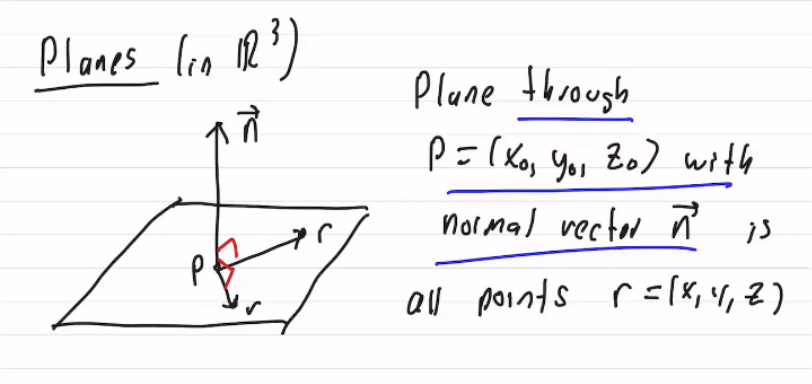 Planes (in ℝ³)
n⃗
r
P
r
Plane through
P = (x₀, y₀, z₀) with
normal vector n⃗ is
all points r = (x, y, z)